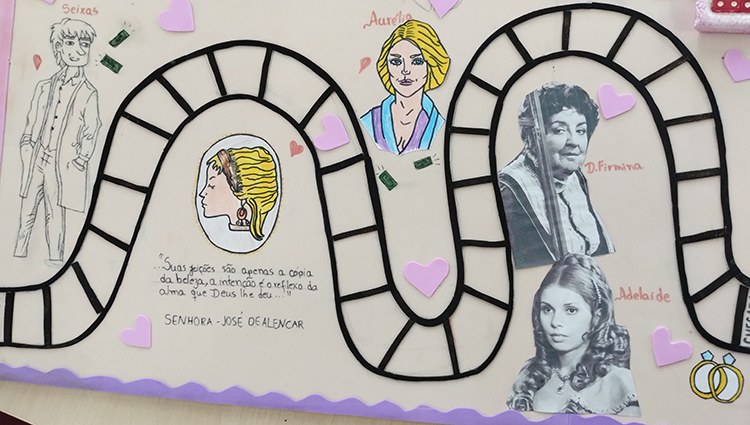 Seixas
Aurélia
D. Firmina
Adelaide
"...Suas feições são apenas a cópia
da beleza, a intenção é o reflexo da
alma que Deus lhe deu..."
SENHORA - JOSÉ DE ALENCAR